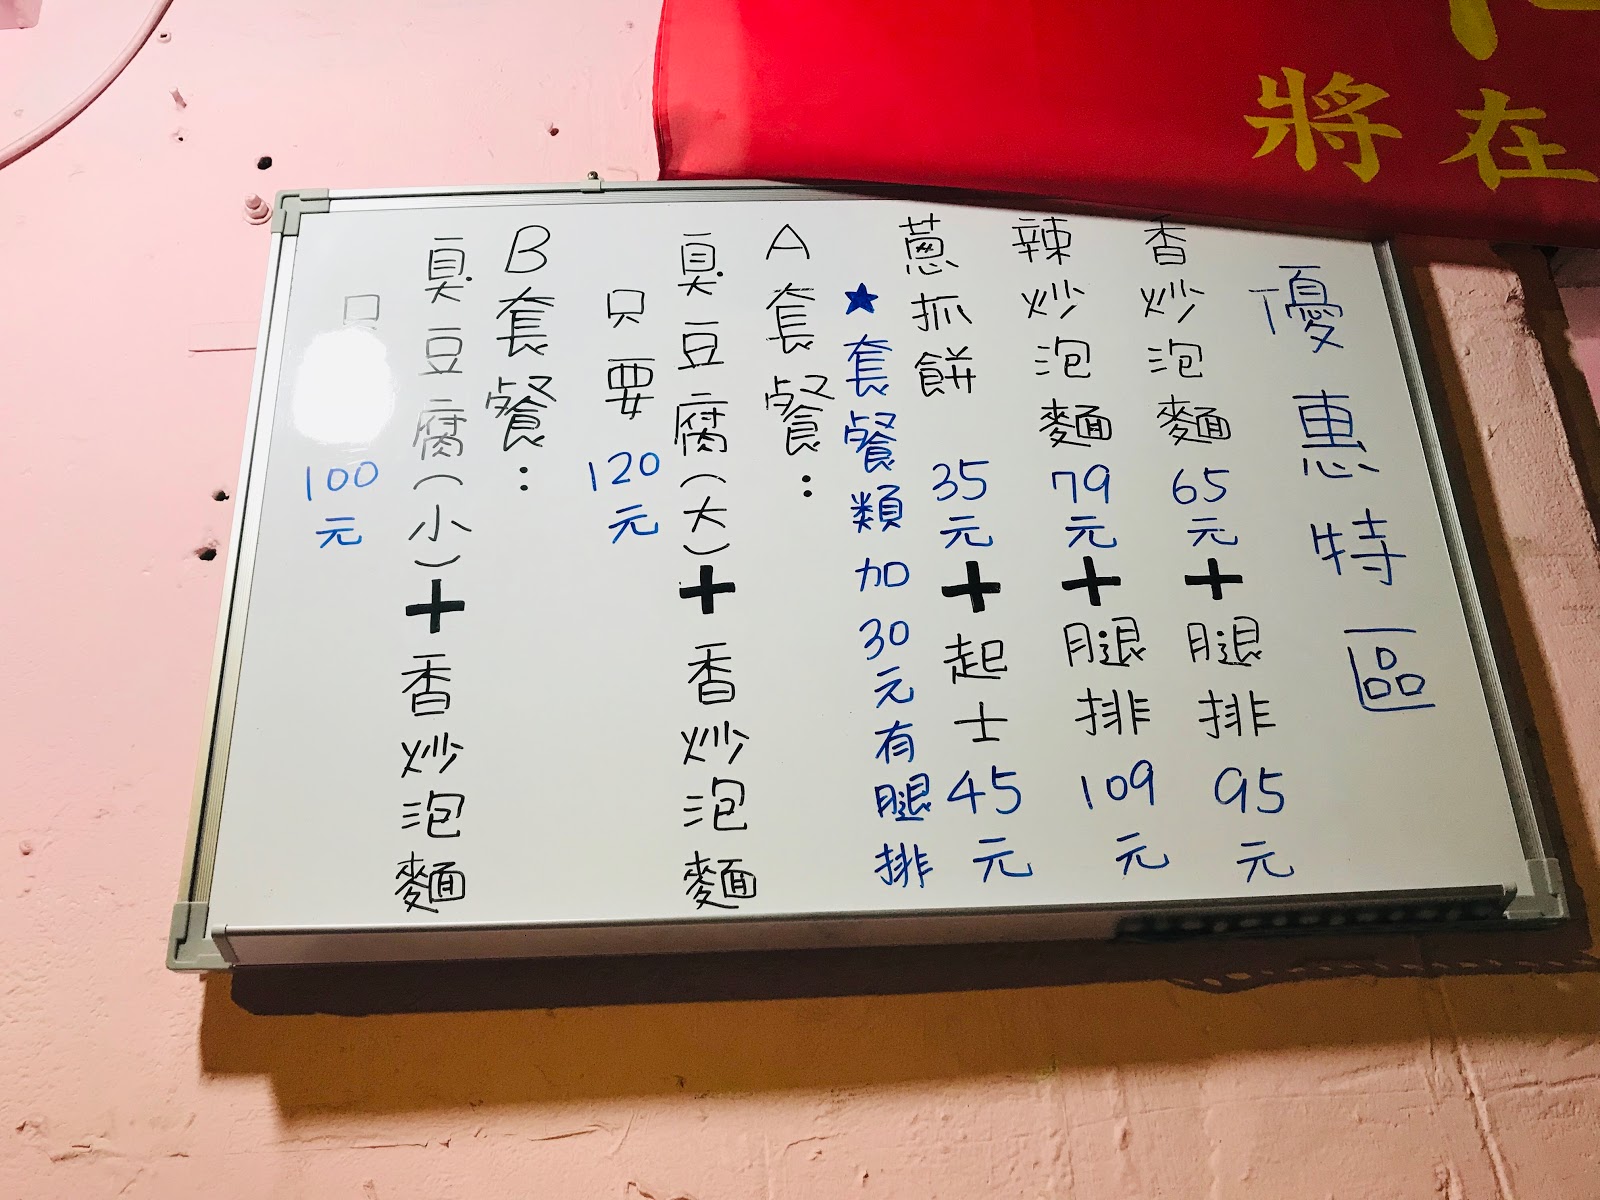 將在
優惠特區
香炒泡麵65元+腿排95元
辣炒泡麵79元+腿排109元
蔥抓餅35元+起士45元
★套餐類加30元有腿排
A套餐:
臭豆腐(大)+香炒泡麵
只要120元
B套餐:
臭豆腐(小)+香炒泡麵
只100元